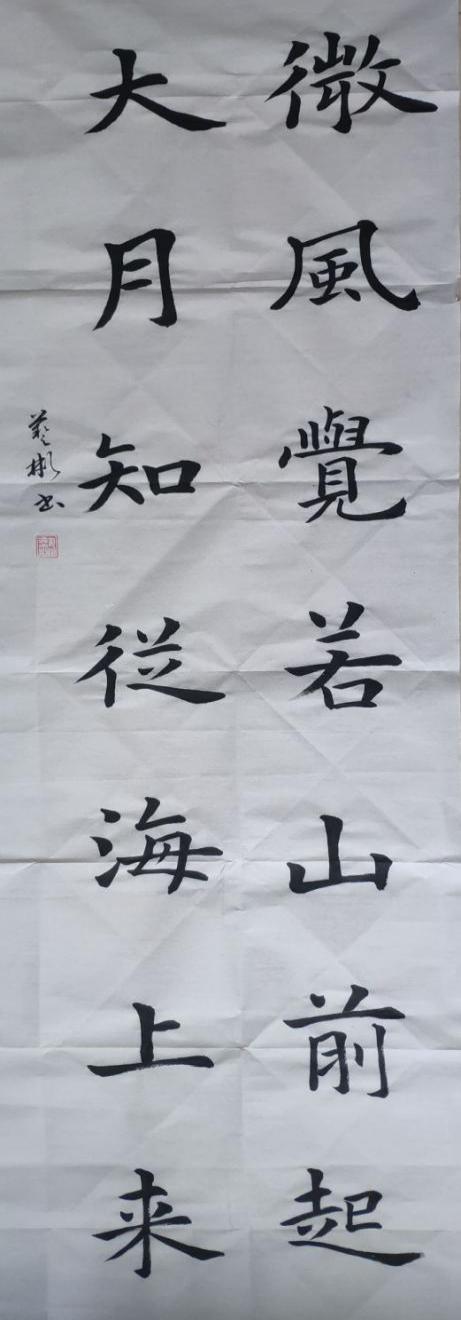 微風覺若山前起
大月知從海上来